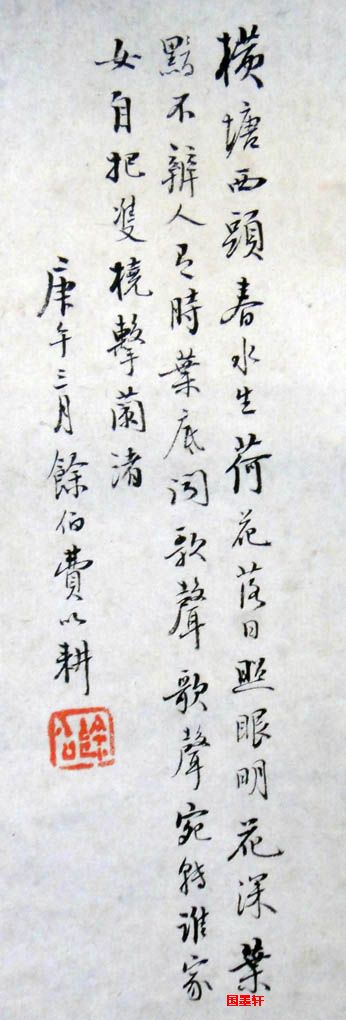 橫塘西頭春水生荷花落日照眼明花深葉
黟不辨人有時葉底聞歌聲歌聲宛轉誰家
女自把雙橈擊蘭渚
庚午三月餘伯費以耕
餘伯
国墨轩